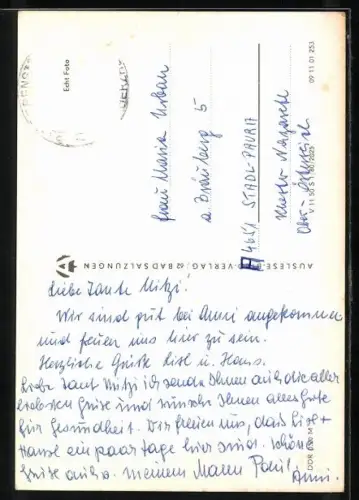 Echt Foto
Frau Maria Urban
a. Bräuberg 5
A 4651 STADL-PAURA
Ober-Österreich
09 11 01 253
V 11 30 S 1
AUSLESE-FOTO-VERLAG 62 BAD SALZUNGEN
Liebe Tante Mitzi!
Wir sind gut bei Anni angekommen
und freuen uns hier zu sein.
Herzliche Grüße Lisl u. Hans.
Liebe Tant Mitzi ich sende Ihnen auch die aller
liebsten Grüße und wünsche Ihnen alles Gute
für Gesundheit. Wir freuen uns, das Lisl +
Hansl ein paar tage hier sind. Schöne
Grüße auch v. meinem Mann Paul.
Anni.
DDR 0,20 M